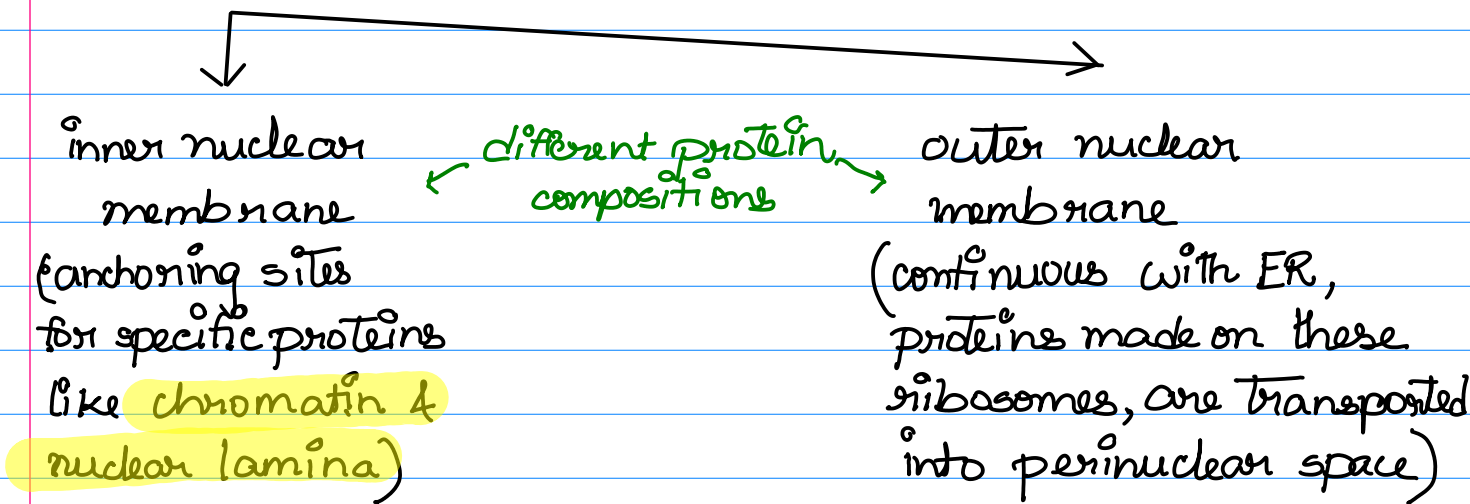 inner nuclear
membrane
(anchoring sites
for specific proteins
like chromatin &
nuclear lamina)
different protein
compositions
outer nuclear
membrane
(continuous with ER,
proteins made on these
ribosomes, are transported
into perinuclear space)